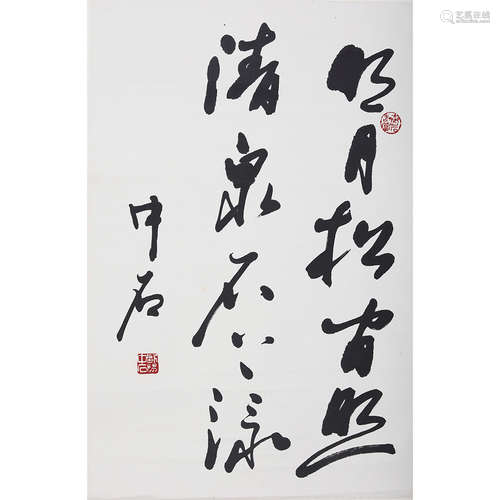 明月松间照
清泉石上流
中石
艺狐在线